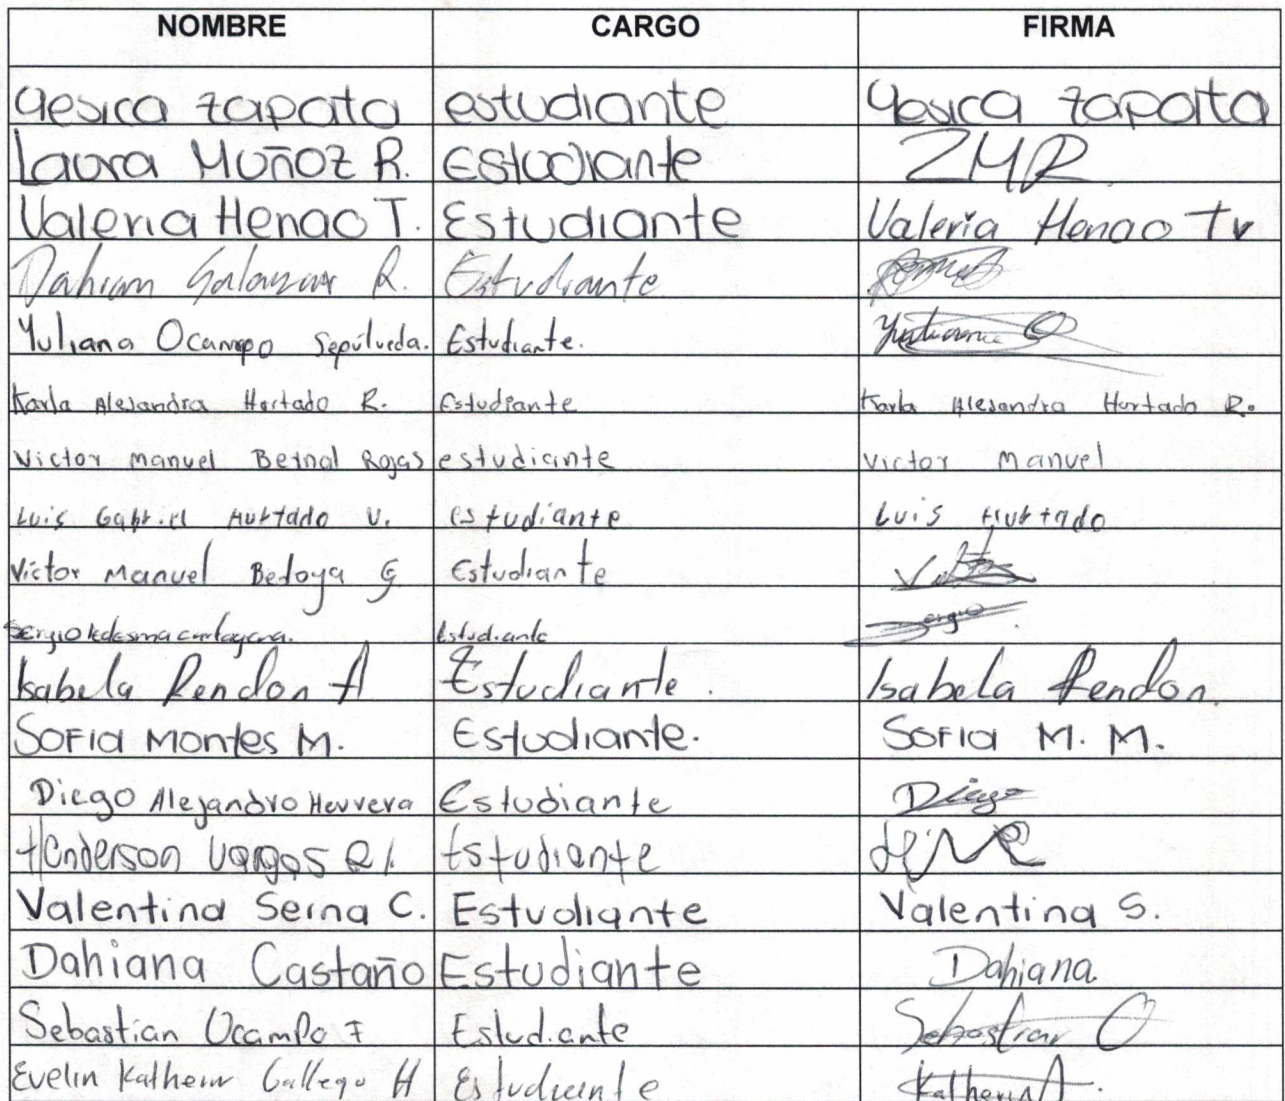 NOMBRE CARGO FIRMA
Yesica Zapata estudiante Yesica Zapata
Laura Muñoz R. Estudiante LMR
Valeria Henao T. Estudiante Valeria Henao Tv
Dahian Salazar R. Estudiante
Yuliana Ocampo Sepúlveda. Estudiante. Yuliana O
Karla Alejandra Hurtado R. Estudiante Karla Alejandra Hurtado R.
Victor Manuel Bernal Rojas estudiante Victor Manuel
Luis Gabriel Hurtado V. estudiante Luis Hurtado
Victor Manuel Bedoya G Estudiante
Sergio ledesma cartagena. Estudiante Sergio
Isabela Rendon A Estudiante. Isabela Rendon.
Sofia Montes M. Estudiante. Sofia M. M.
Diego Alejandro Herrera Estudiante Diego
Henderson Vargas Estudiante
Valentina Serna C. Estudiante Valentina S.
Dahiana Castaño Estudiante Dahiana
Sebastian Ocampo F Estudiante Sebastian O
Evelin Katherin Gallego H Estudiante Katherin